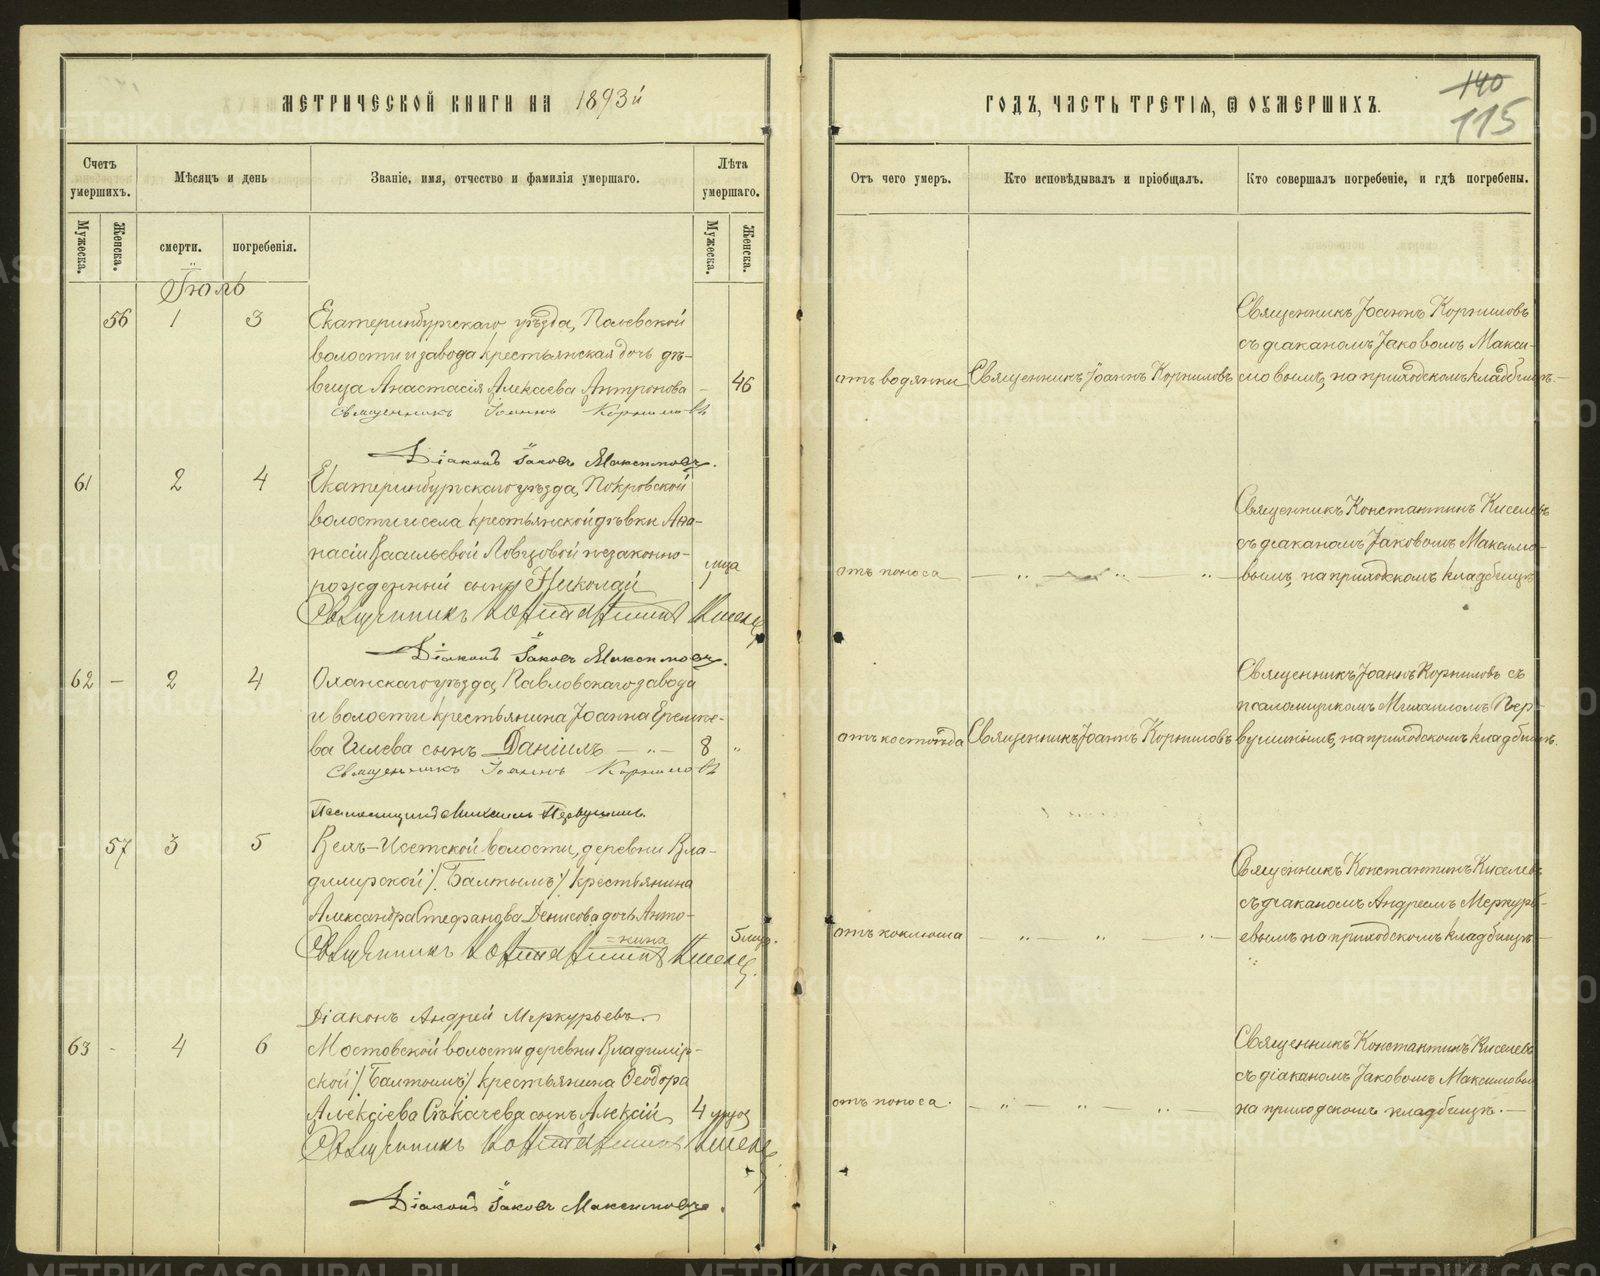 МЕТРИЧЕСКОЙ КНИГИ НА 1893й
ГОДЪ, ЧАСТЬ ТРЕТІЯ, Ѿ ОУМЕРШИХЪ.
140
115
Счетъ умершихъ.
Мѣсяцъ и день
Званіе, имя, отчество и фамилія умершаго.
Лѣта умершаго.
Отъ чего умеръ.
Кто исповѣдывалъ и пріобщалъ.
Кто совершалъ погребеніе, и гдѣ погребены.
Мужеска.
Женска.
смерти.
погребенія.
Мужеска.
Женска.
Іюль
56 1 3
Екатеринбургскаго уѣзда, Полевской
волости и завода крестьянская дочь дѣ-
вица Анастасія Алекаева Антропова - 46
отъ водянки
Священникъ Іоаннъ Корниловъ
Священникъ Іоаннъ Корниловъ
съ діакономъ Іаковомъ Макси-
мовымъ, на приходскомъ кладбищѣ.
Священникъ Іоаннъ Корниловъ
Діаконъ Іаковъ Максимовъ.
61 2 4
Екатеринбургскаго уѣзда, Покровской
волости и села крестьянской дѣвки Ана-
насіи Васильевой Ловцовой незаконно-
рожденный сынъ Николай
1 мца
отъ поноса
— „ — „ — „ —
Священникъ Константинъ Киселевъ
съ діакономъ Іаковомъ Максимо-
вымъ, на приходскомъ кладбищѣ
Священникъ Константинъ Киселевъ
Діаконъ Іаковъ Максимовъ.
62 — 2 4
Оханскаго уѣзда, Павловскаго завода
и волости крестьянина Іоанна Еремѣе-
ва Гилева сынъ Даніилъ — „ — 8 „
отъ костоѣда
Священникъ Іоаннъ Корниловъ
Священникъ Іоаннъ Корниловъ съ
псаломщикомъ Михаиломъ Пер-
вушинымъ, на приходскомъ кладбищѣ.
Священникъ Іоаннъ Корниловъ
Псаломщикъ Михаилъ Первушинъ.
57 3 5
Верх-Исетской волости, деревни Вла-
димірской /Балтымъ/ крестьянина
Александра Стефанова Денисова дочь Анто-
=нина
5 мцо.
отъ коклюша
— „ — „ — „ —
Священникъ Константинъ Киселевъ
съ діакономъ Андреемъ Меркурь-
евымъ на приходскомъ кладбищѣ
Священникъ Константинъ Киселевъ.
Діаконъ Андрей Меркурьевъ.
63 - 4 6
Мостовской волости деревни Владимір-
ской /Балтымъ/ крестьянина Ѳеодора
Алексіева Сѣкачева сынъ Алексій
отъ поноса.
— „ — „ — „ —
Священникъ Константинъ Киселевъ
съ діакономъ Іаковомъ Максимовы
на приходскомъ кладбищѣ. —
Священникъ Константинъ Киселевъ
Діаконъ Іаковъ Максимовъ.
METRIKI.GASO-URAL.RU